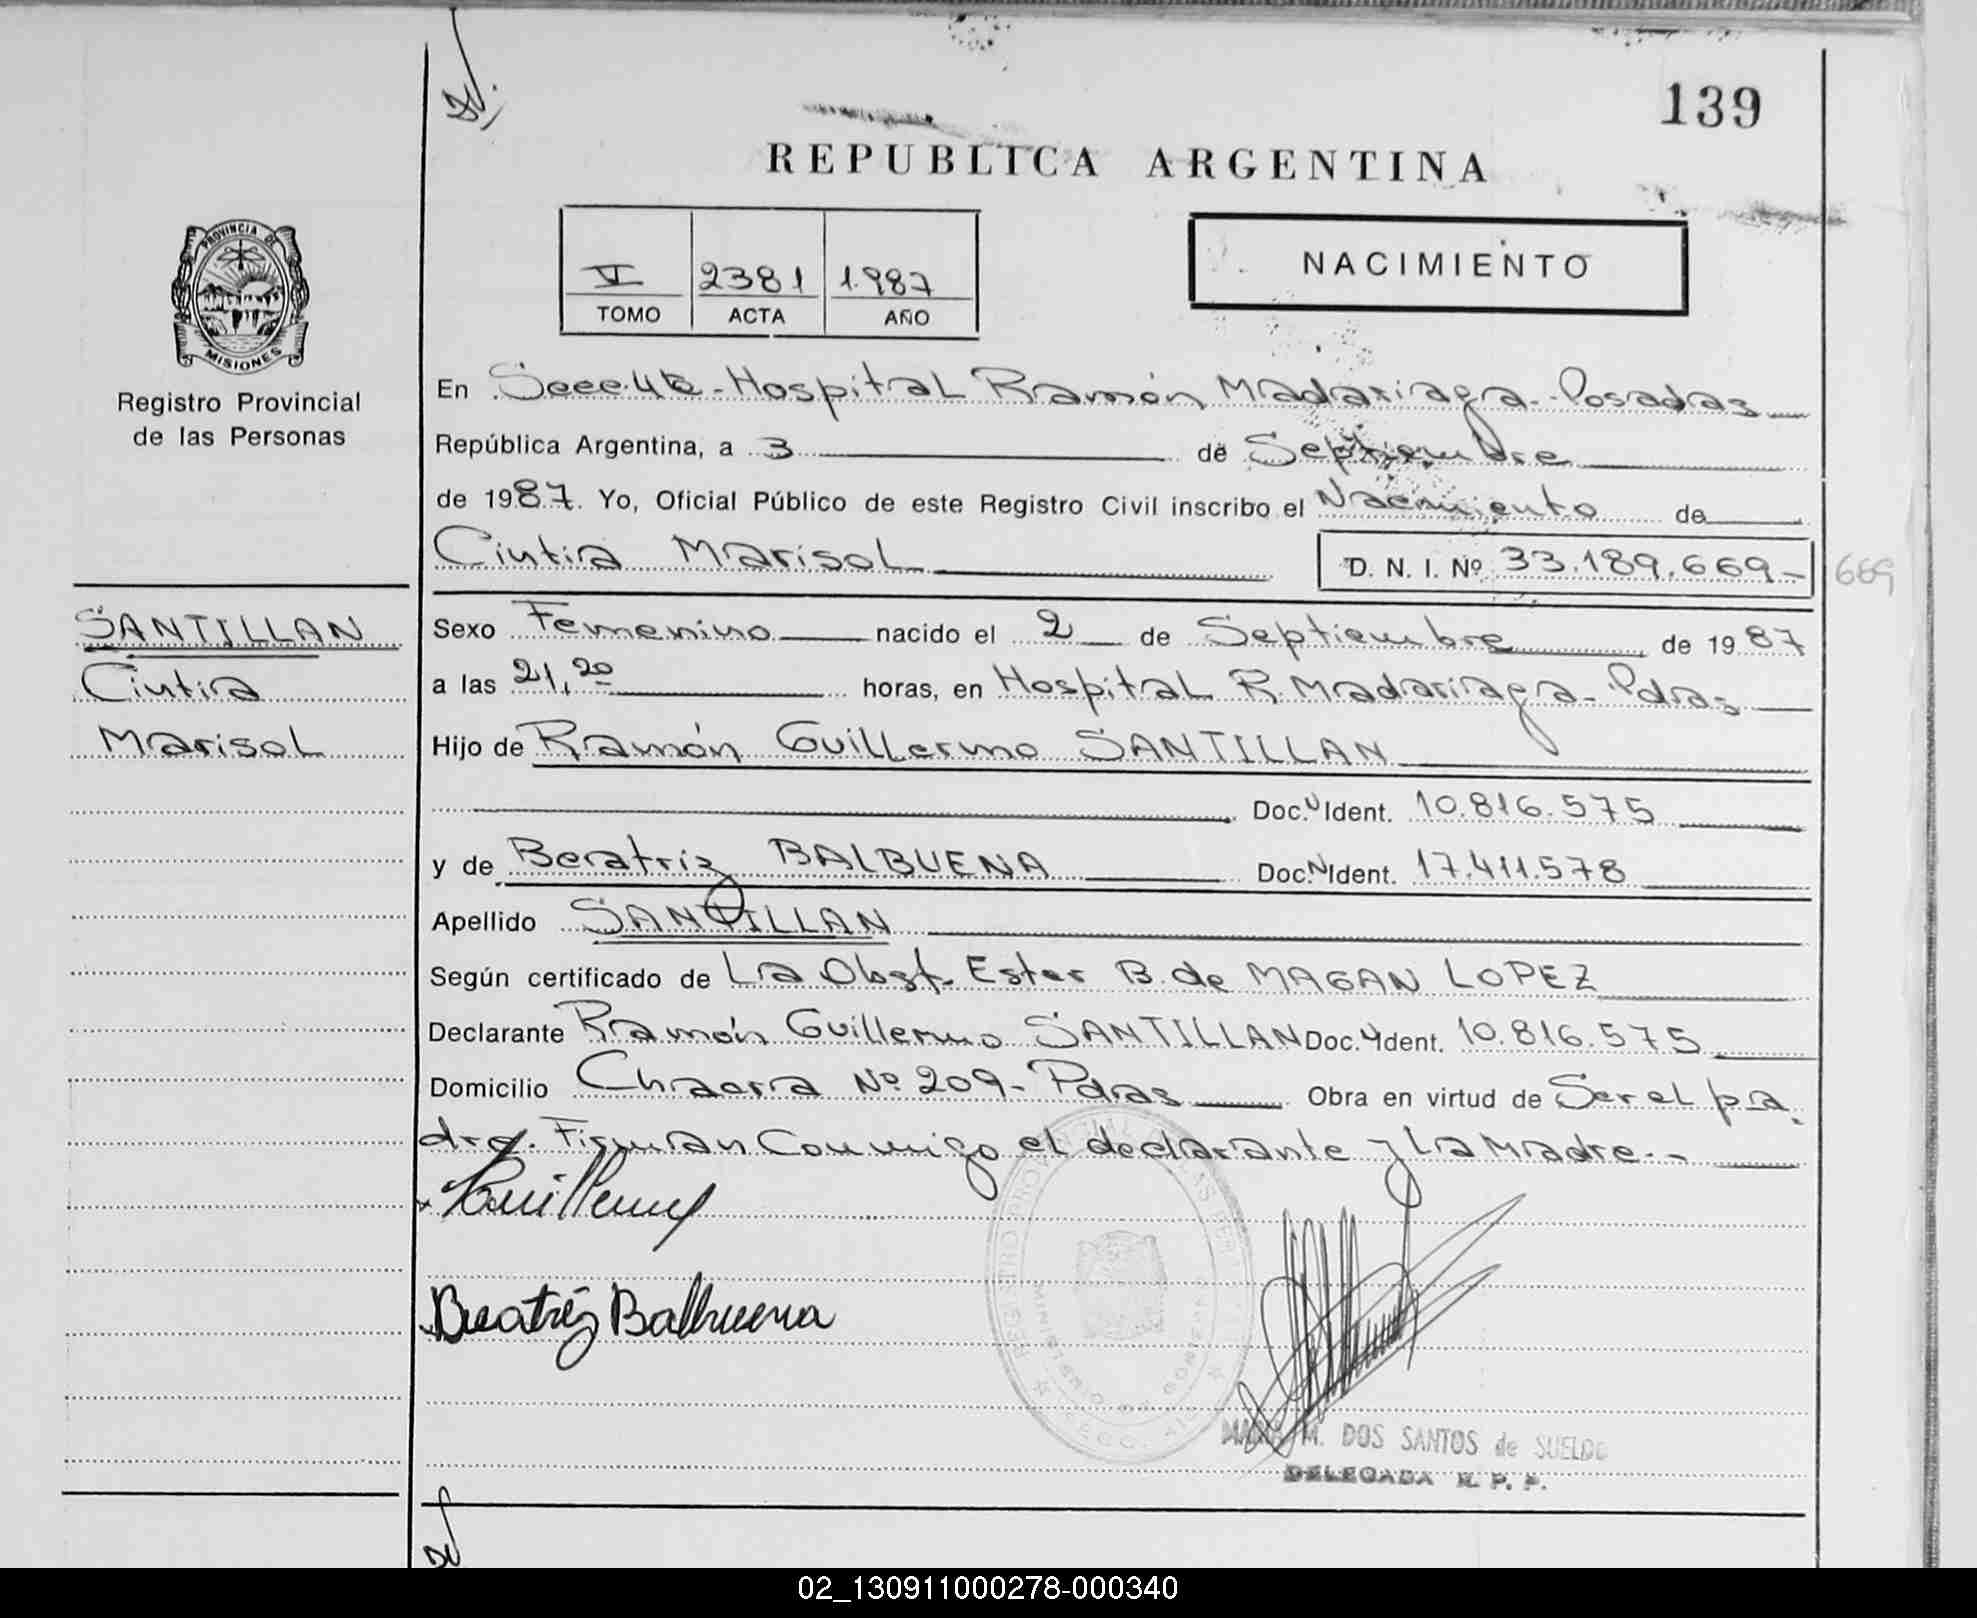 139
REPUBLICA ARGENTINA
PROVINCIA DE
MISIONES
Registro Provincial
de las Personas
VI 2381 1.987
TOMO ACTA AÑO
NACIMIENTO
En Secc. 4ta - Hospital Ramón Madariaga - Posadas
República Argentina, a 3 de Septiembre
de 1987. Yo, Oficial Público de este Registro Civil inscribo el Nacimiento de
Cintia Marisol D. N. I. Nº 33.189.669- 669
SANTILLAN
Cintia
Marisol
Sexo Femenino nacido el 2 de Septiembre de 1987
a las 21,20 horas, en Hospital R. Madariaga - Pdas
Hijo de Ramón Guillermo SANTILLAN
Doc. Ident. 10.816.575
y de Beatriz BALBUENA Doc. Ident. 17.411.578
Apellido SANTILLAN
Según certificado de La Obst. Ester B. de MAGAN LOPEZ
Declarante Ramón Guillermo SANTILLAN Doc. Ident. 10.816.575
Domicilio Chacra Nº 209 - Pdas Obra en virtud de Ser el pa
dre. Firman Conmigo el declarante y La Madre.-
Guillermo
Beatriz Balbuena
MARIA M. DOS SANTOS de SUELDO
DELEGADA R. P. P.
02_130911000278-000340